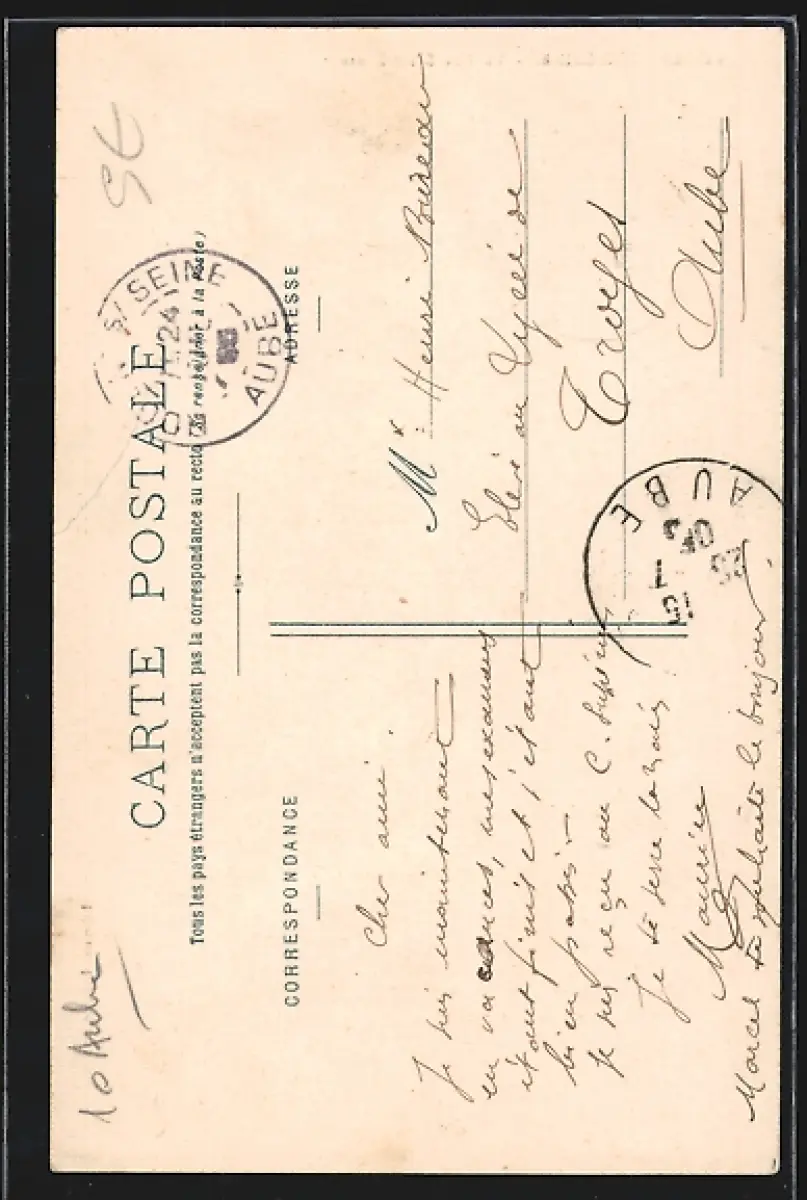 10 Aube
5€
CARTE POSTALE
Tous les pays étrangers n'acceptent pas la correspondance au recto (Se renseigner à la Poste)
S/ SEINE
24
AUBE
CORRESPONDANCE
Cher ami.
Je suis maintenant
en vacances, mes examens
étant finis et j'étant
bien passé. —
Je suis reçu au C.
Je te serre la main
Maurice
Marcel te souhaite le bonjour.
ADRESSE
Mr: Henri
Elève au Lycée de
Troyes
Aube
AUBE